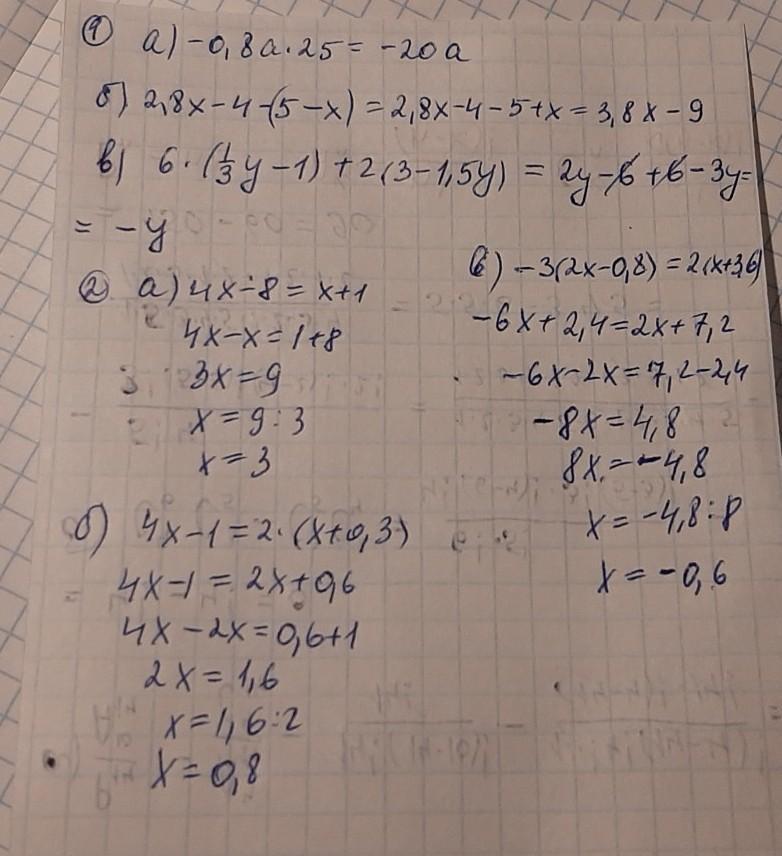 ① а) -0,8a·25 = -20a
б) 2,8x-4-(5-x) = 2,8x-4-5+x = 3,8x-9
в) 6·(1/3y-1)+2(3-1,5y) = 2y-6+6-3y=
= -y
② а) 4x-8=x+1
4x-x=1+8
3x=9
x=9:3
x=3
б) 4x-1=2·(x+0,3)
4x-1=2x+0,6
4x-2x=0,6+1
2x=1,6
x=1,6:2
x=0,8
в) -3(2x-0,8)=2(x+3,6)
-6x+2,4=2x+7,2
-6x-2x=7,2-2,4
-8x=4,8
8x=-4,8
x=-4,8:8
x=-0,6